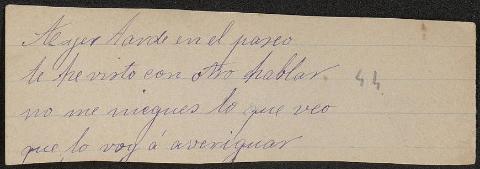 Ayer tarde en el paseo
te he visto con otro hablar 44
no me niegues lo que veo
que lo voy á averiguar